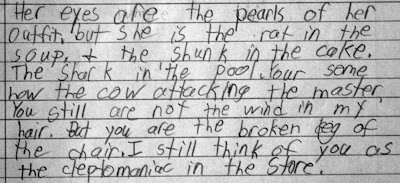 Her eyes are the pearls of her
outfit, but she is the rat in the
soup, + the shunk in the cake.
The shark in the pool. Your some
how the cow attacking the master.
You still are not the wind in my
hair. But you are the broken leg of
the chair. I still think of you as
the cleptomaniac in the store.